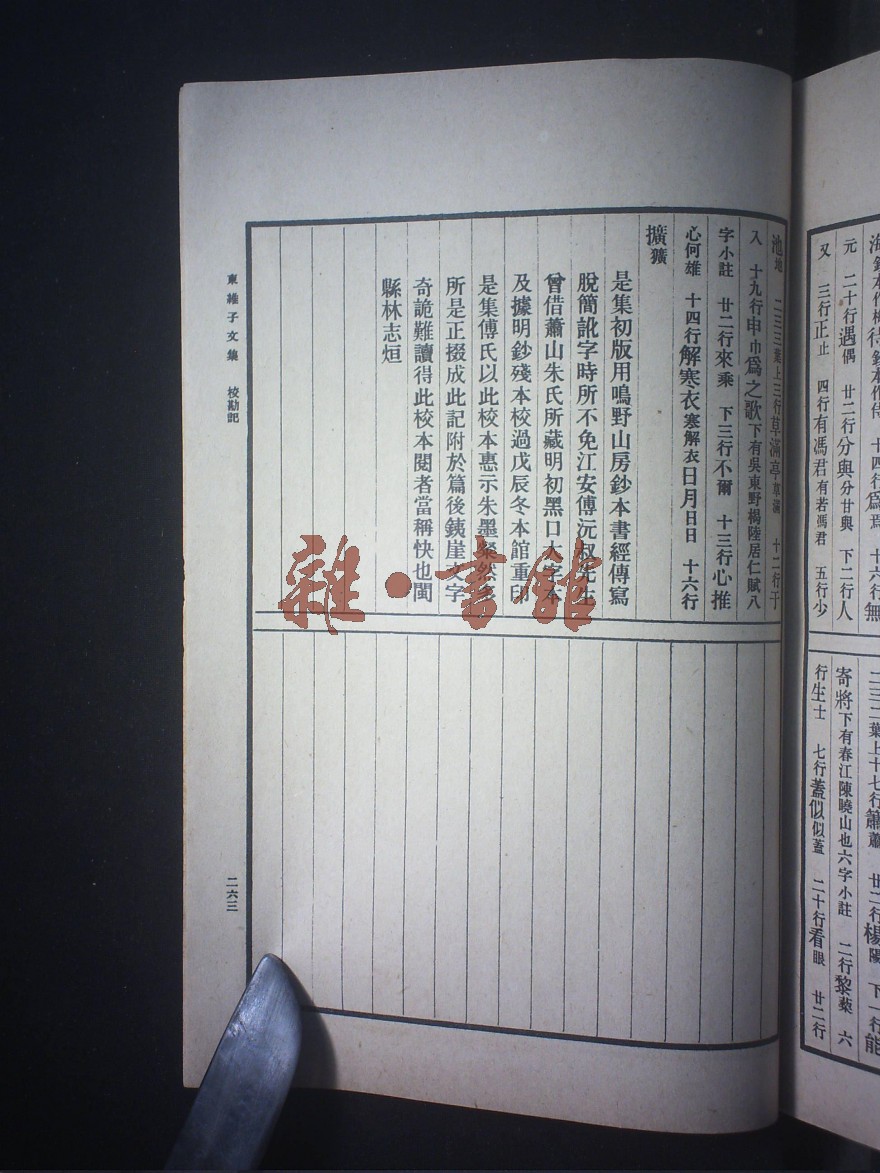 元　二十行遇偶　廿二行分與分廿與　下二行人
又　三行正止　四行有馮君有若馮君　五行少
二三二葉上十七行簫蕭　廿二行楊陽　下一行能
寄將下有春江陳曉山也六字小註　二行黎藜　六
行生士　七行蓋似似蓋　二十行看眼　廿二行
池地　二三三葉上三行草滿亭草滿　十二行于
入　十九行申巾爲之歌下有吳東野楊陸居仁賦八
字小註　廿二行來乘　下三行不爾　十三行心推
心何雄　十四行解寒衣寒解衣日月日日　十六行
擴獷
是集初版用鳴野山房鈔本書經傳寫
脫簡訛字時所不免江安傅沅叔先生
曾借蕭山朱氏所藏明初黑口大字本
及據明鈔殘本校過戊辰冬本館重印
是集傅氏以此校本惠示朱墨粲然
所是正掇成此記附於篇後銕崖文字
奇詭難讀得此校本閱者當稱快也閩
縣林志烜
東維子文集　校勘記
二六三
雜·書館